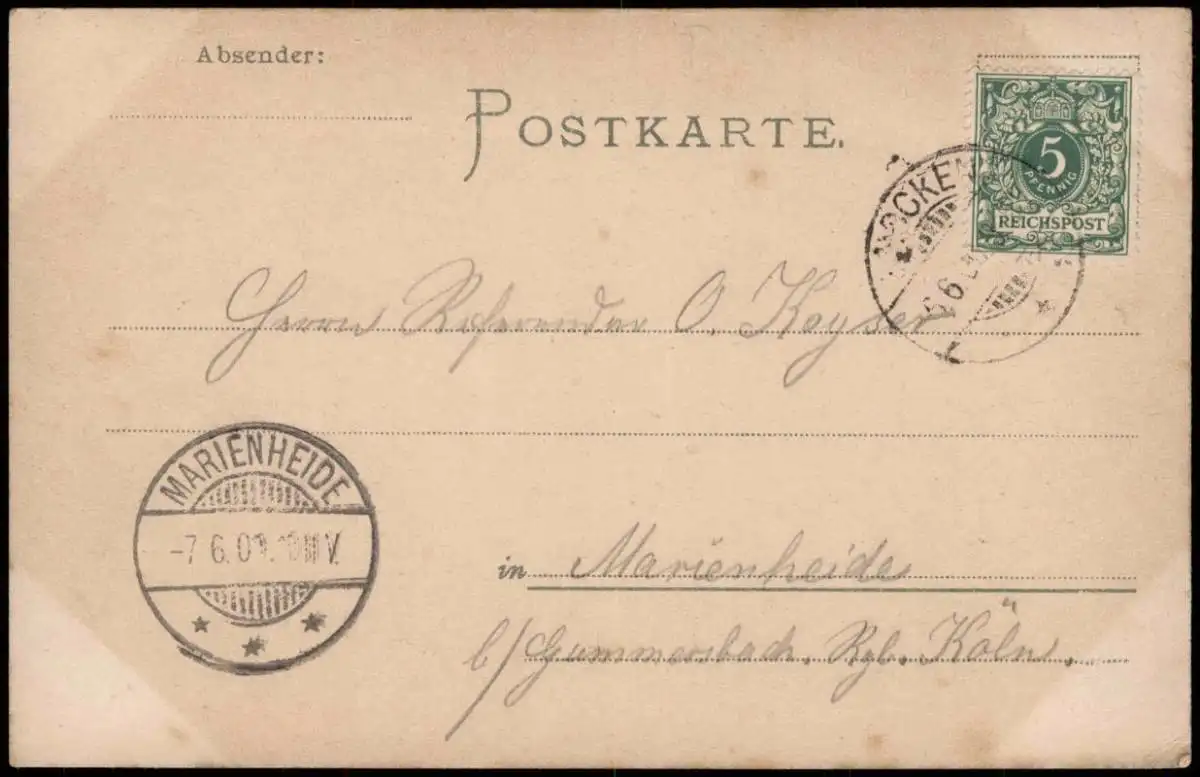 Absender:
POSTKARTE.
5
PFENNIG
REICHSPOST
6 6
Herrn Referendar O. Keyser
MARIENHEIDE
-7 6. V.
in Marienheide
b/ Gummersbach, Rgb. Köln.